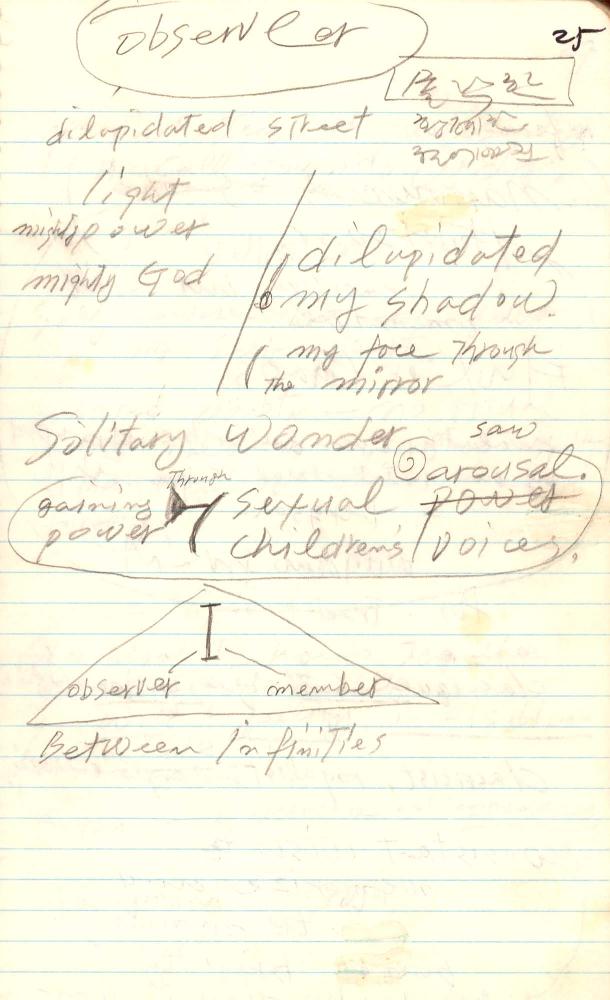 observer
25
dilapidated street
light
mighty power
mighty God
dilapidated
my shadow.
my face Through
The mirror
Solitary Wonder
saw
Through
gaining
power
sexual arousal.
power
children's voices.
I
observer member
Between Infinities